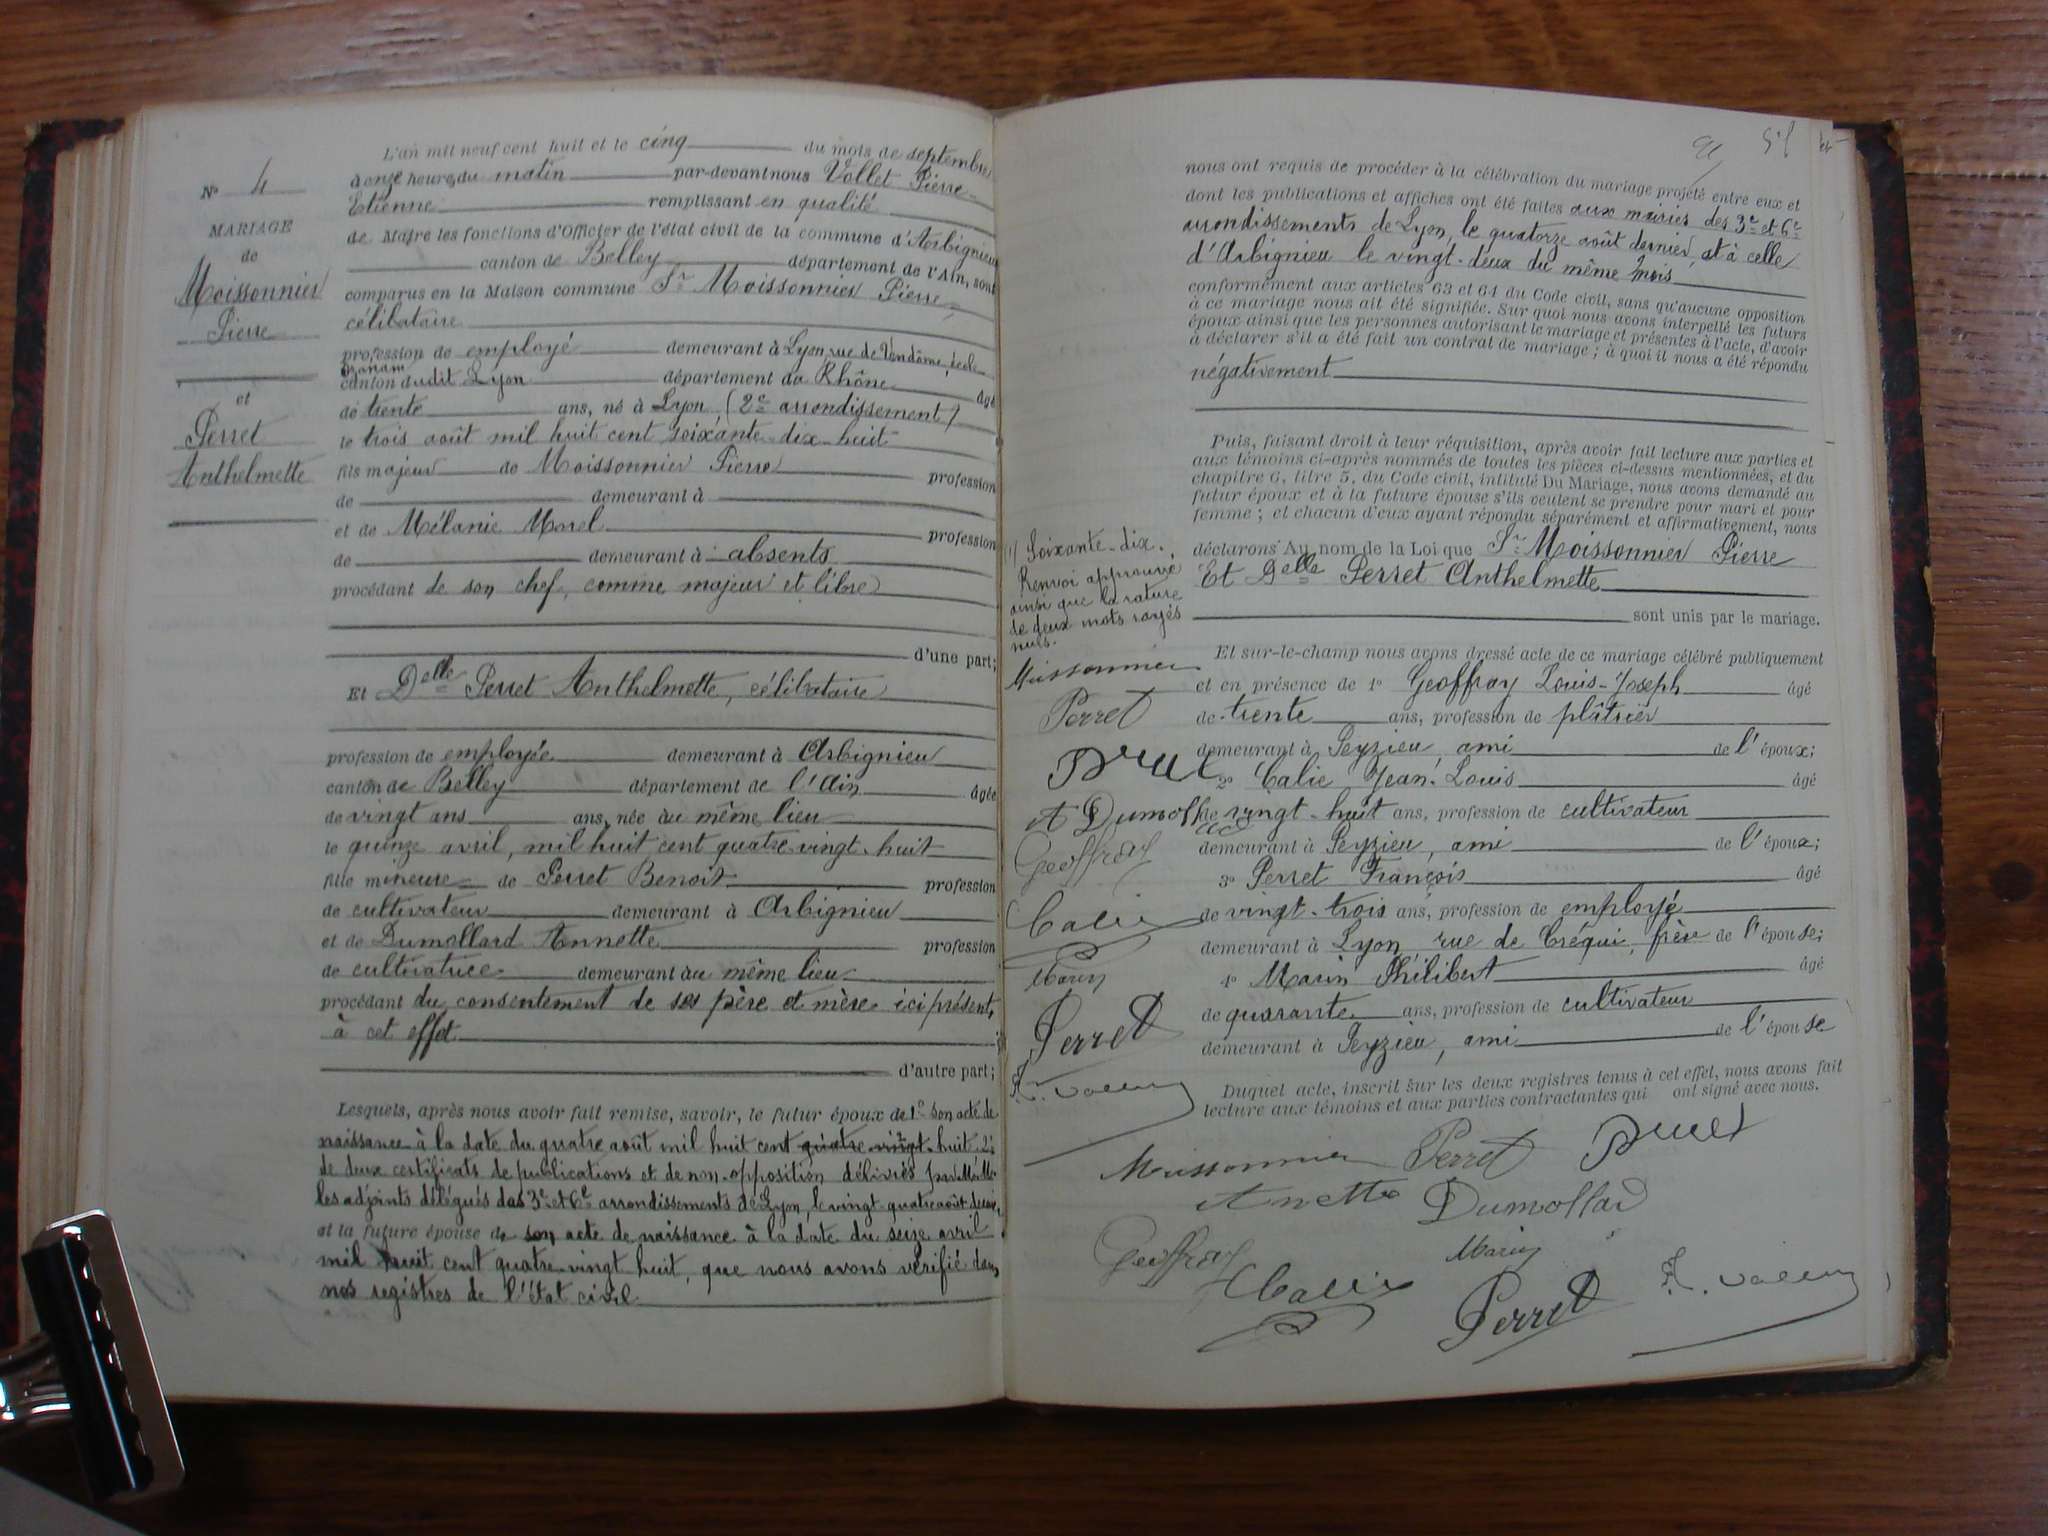 L'an mil neuf cent huit et le cinq du mois de septembre
N° 4
à onze heures du matin par-devant nous Vollet Pierre-
Etienne remplissant en qualité
MARIAGE
de
Moissonnier
Pierre
et
Perret
Anthelmette
de Maire les fonctions d'Officier de l'état civil de la commune d'Arbignieu
canton de Belley département de l'Ain, sont
comparus en la Maison commune Sr Moissonnier Pierre,
célibataire
profession de employé demeurant à Lyon, rue de Vendôme, école
Ozanam
canton dudit Lyon département du Rhône âgé
de trente ans, né à Lyon (2e arrondissement)
le trois août mil huit cent soixante-dix-huit
fils majeur de Moissonnier Pierre profession
de demeurant à
et de Mélanie Morel profession
de demeurant à absents
procédant de son chef, comme majeur et libre
d'une part;
Et Delle Perret Anthelmette, célibataire
profession de employée demeurant à Arbignieu
canton de Belley département de l'Ain âgée
de vingt ans ans, née au même lieu
le quinze avril, mil huit cent quatre-vingt-huit
fille mineure de Perret Benoit profession
de cultivateur demeurant à Arbignieu
et de Dumollard Annette profession
de cultivatrice demeurant au même lieu
procédant du consentement de ses père et mère ici présent,
à cet effet
d'autre part;
Lesquels, après nous avoir fait remise, savoir, le futur époux de 1° son acte de
naissance à la date du quatre août mil huit cent quatre-vingt-huit 2°
de deux certificats de publications et de non-opposition délivrés par M.M.
les adjoints délégués des 3e et 6e arrondissements de Lyon, le vingt-quatre août dernier,
et la future épouse de son acte de naissance à la date du seize avril
mil huit cent quatre-vingt huit, que nous avons vérifié dans
nos registres de l'état civil
nous ont requis de procéder à la célébration du mariage projeté entre eux et
dont les publications et affiches ont été faites aux mairies des 3e et 6e
arrondissements de Lyon, le quatorze août dernier, et à celle
d'Arbignieu le vingt-deux du même mois
conformément aux articles 63 et 64 du Code civil, sans qu'aucune opposition
à ce mariage nous ait été signifiée. Sur quoi nous avons interpellé les futurs
époux ainsi que les personnes autorisant le mariage et présentes à l'acte, d'avoir
à déclarer s'il a été fait un contrat de mariage; à quoi il nous a été répondu
négativement
Puis, faisant droit à leur réquisition, après avoir fait lecture aux parties et
aux témoins ci-après nommés de toutes les pièces ci-dessus mentionnées, et du
chapitre 6, titre 5, du Code civil, intitulé Du Mariage, nous avons demandé au
futur époux et à la future épouse s'ils veulent se prendre pour mari et pour
femme; et chacun d'eux ayant répondu séparément et affirmativement, nous
déclarons Au nom de la Loi que Sr Moissonnier Pierre
Et Delle Perret Anthelmette
sont unis par le mariage.
(1) Soixante-dix.
Renvoi approuvé
ainsi que la rature
de deux mots rayés
nuls.
Moissonnier
Perret
et Dumollard
Geoffray
Calix
Marin
Perret
Et sur-le-champ nous avons dressé acte de ce mariage célébré publiquement
et en présence de 1° Geoffray Louis-Joseph âgé
de trente ans, profession de plâtrier
demeurant à Peyzieu, ami de l'époux;
2° Calix Jean-Louis âgé
de vingt-huit ans, profession de cultivateur
demeurant à Peyzieu, ami de l'époux;
3° Perret François âgé
de vingt-trois ans, profession de employé
demeurant à Lyon, rue de Créqui, frère de l'épouse;
4° Marin Philibert âgé
de quarante ans, profession de cultivateur
demeurant à Peyzieu, ami de l'épouse
Duquel acte, inscrit sur les deux registres tenus à cet effet, nous avons fait
lecture aux témoins et aux parties contractantes qui ont signé avec nous.
Moissonnier Perret
Anette Dumollard
Geoffray Marin
Calix Perret